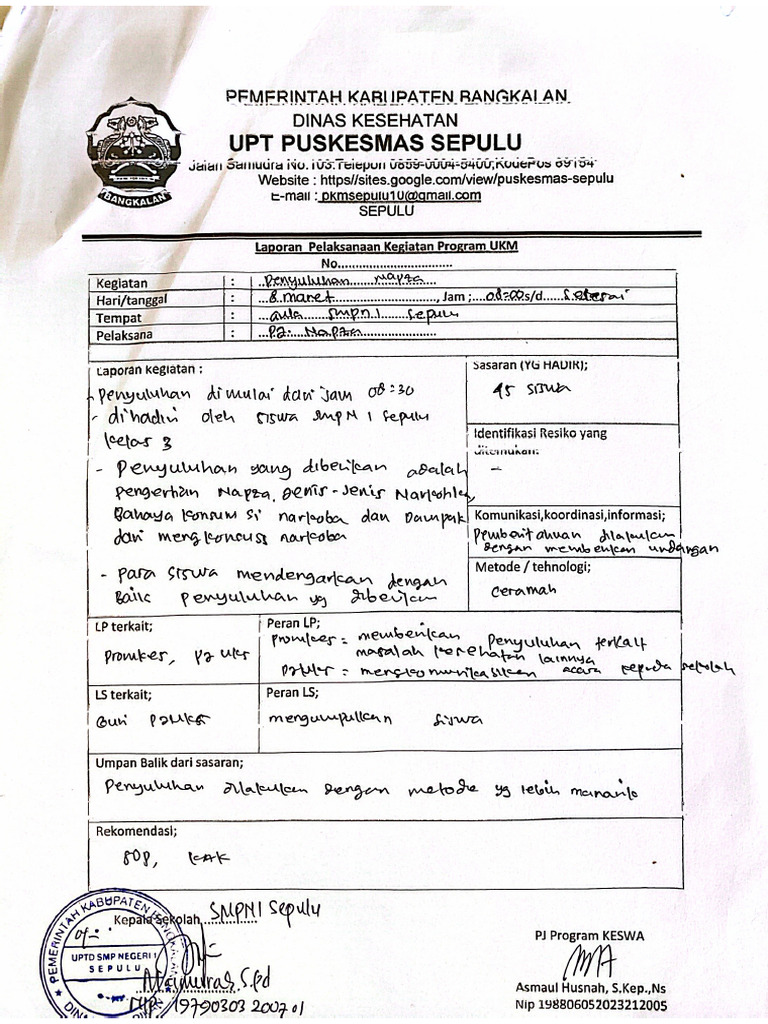 PEMERINTAH KABUPATEN BANGKALAN
DINAS KESEHATAN
UPT PUSKESMAS SEPULU
Jalan Samudra No.103:Telepon 0859-0004-5400;KodePos 69154
Website : https//sites.google.com/view/puskesmas-sepulu
E-mail : pkmsepulu10@gmail.com
SEPULU
BANGKALAN
Laporan Pelaksanaan Kegiatan Program UKM
No................................
Kegiatan : Penyuluhan Napza
Hari/tanggal : 8 maret, Jam ; 08:00 s/d selesai
Tempat : aula SMPN 1 Sepulu
Pelaksana : PJ. Napza
Laporan kegiatan :
- Penyuluhan di mulai dari jam 08:30
- dihadiri oleh siswa SMPN 1 Sepulu
kelas 3
- Penyuluhan yang diberikan adalah
pengertian Napza, Jenis-Jenis Narkoba,
Bahaya konsumsi narkoba dan Dampak
dari narkoba
- Para siswa mendengarkan dengan
Baik penyuluhan yg diberikan
Sasaran (YG HADIR);
45 siswa
Identifikasi Resiko yang
ditemukan:
-
Komunikasi,koordinasi,informasi;
Pemberitahuan dilakukan
dengan memberikan undangan
Metode / tehnologi;
ceramah
LP terkait;
Promkes, PJ UKS
Peran LP;
Promkes = memberikan Penyuluhan terkait
masalah kesehatan lainnya
PJ UKS = mengkomunikasikan acara kepada sekolah
LS terkait;
Guru
Peran LS;
mengumpulkan siswa
Umpan Balik dari sasaran;
Penyuluhan dilakukan dengan metode yg lebih menarik
Rekomendasi;
SOP, KAK
Kepala Sekolah SMPN1 Sepulu
PEMERINTAH KABUPATEN BANGKALAN
UPTD SMP NEGERI 1
SEPULU
S.Pd
NIP. 19790303 2007 01
PJ Program KESWA
Asmaul Husnah, S.Kep.,Ns
Nip 198806052023212005